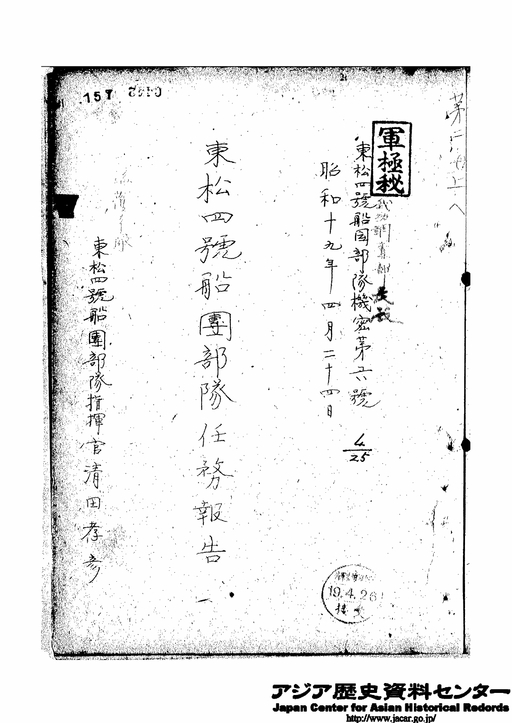 軍極秘
東松四號船團部隊機密第六號
昭和十九年四月二十四日
4/25
東松四號船團部隊任務報告
東松四號船團部隊指揮官清田孝彦
19.4.26
アジア歴史資料センター
Japan Center for Asian Historical Records
http://www.jacar.go.jp/